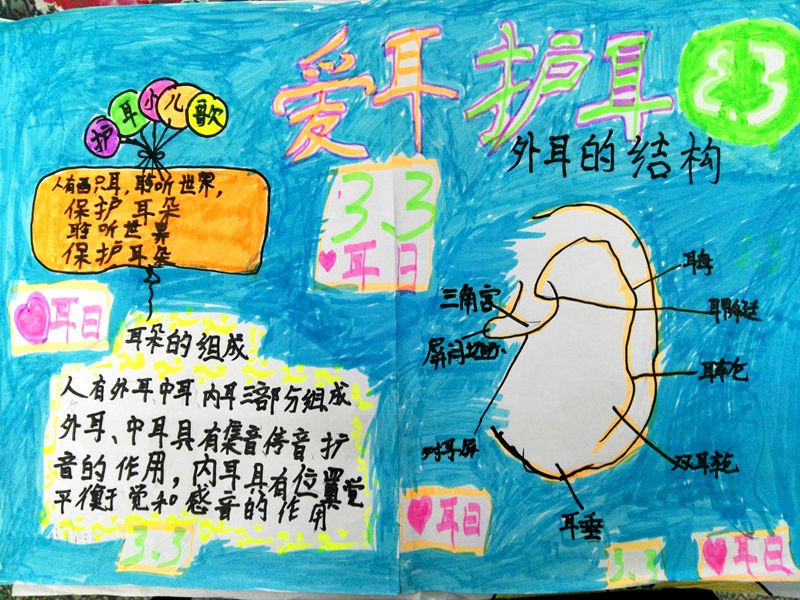 爱耳护耳
3.3
护耳小儿歌
外耳的结构
人有两只耳，聆听世界，
保护耳朵
聆听世界
保护耳朵
3.3
耳日
耳日
耳朵的组成
人有外耳中耳内耳三部分组成
外耳、中耳具有集音传音护
音的作用，内耳具有位置觉
平衡于觉和感音的作用
3.3
三角宫
对耳屏
耳垂
3.3
耳日
3.3
耳日